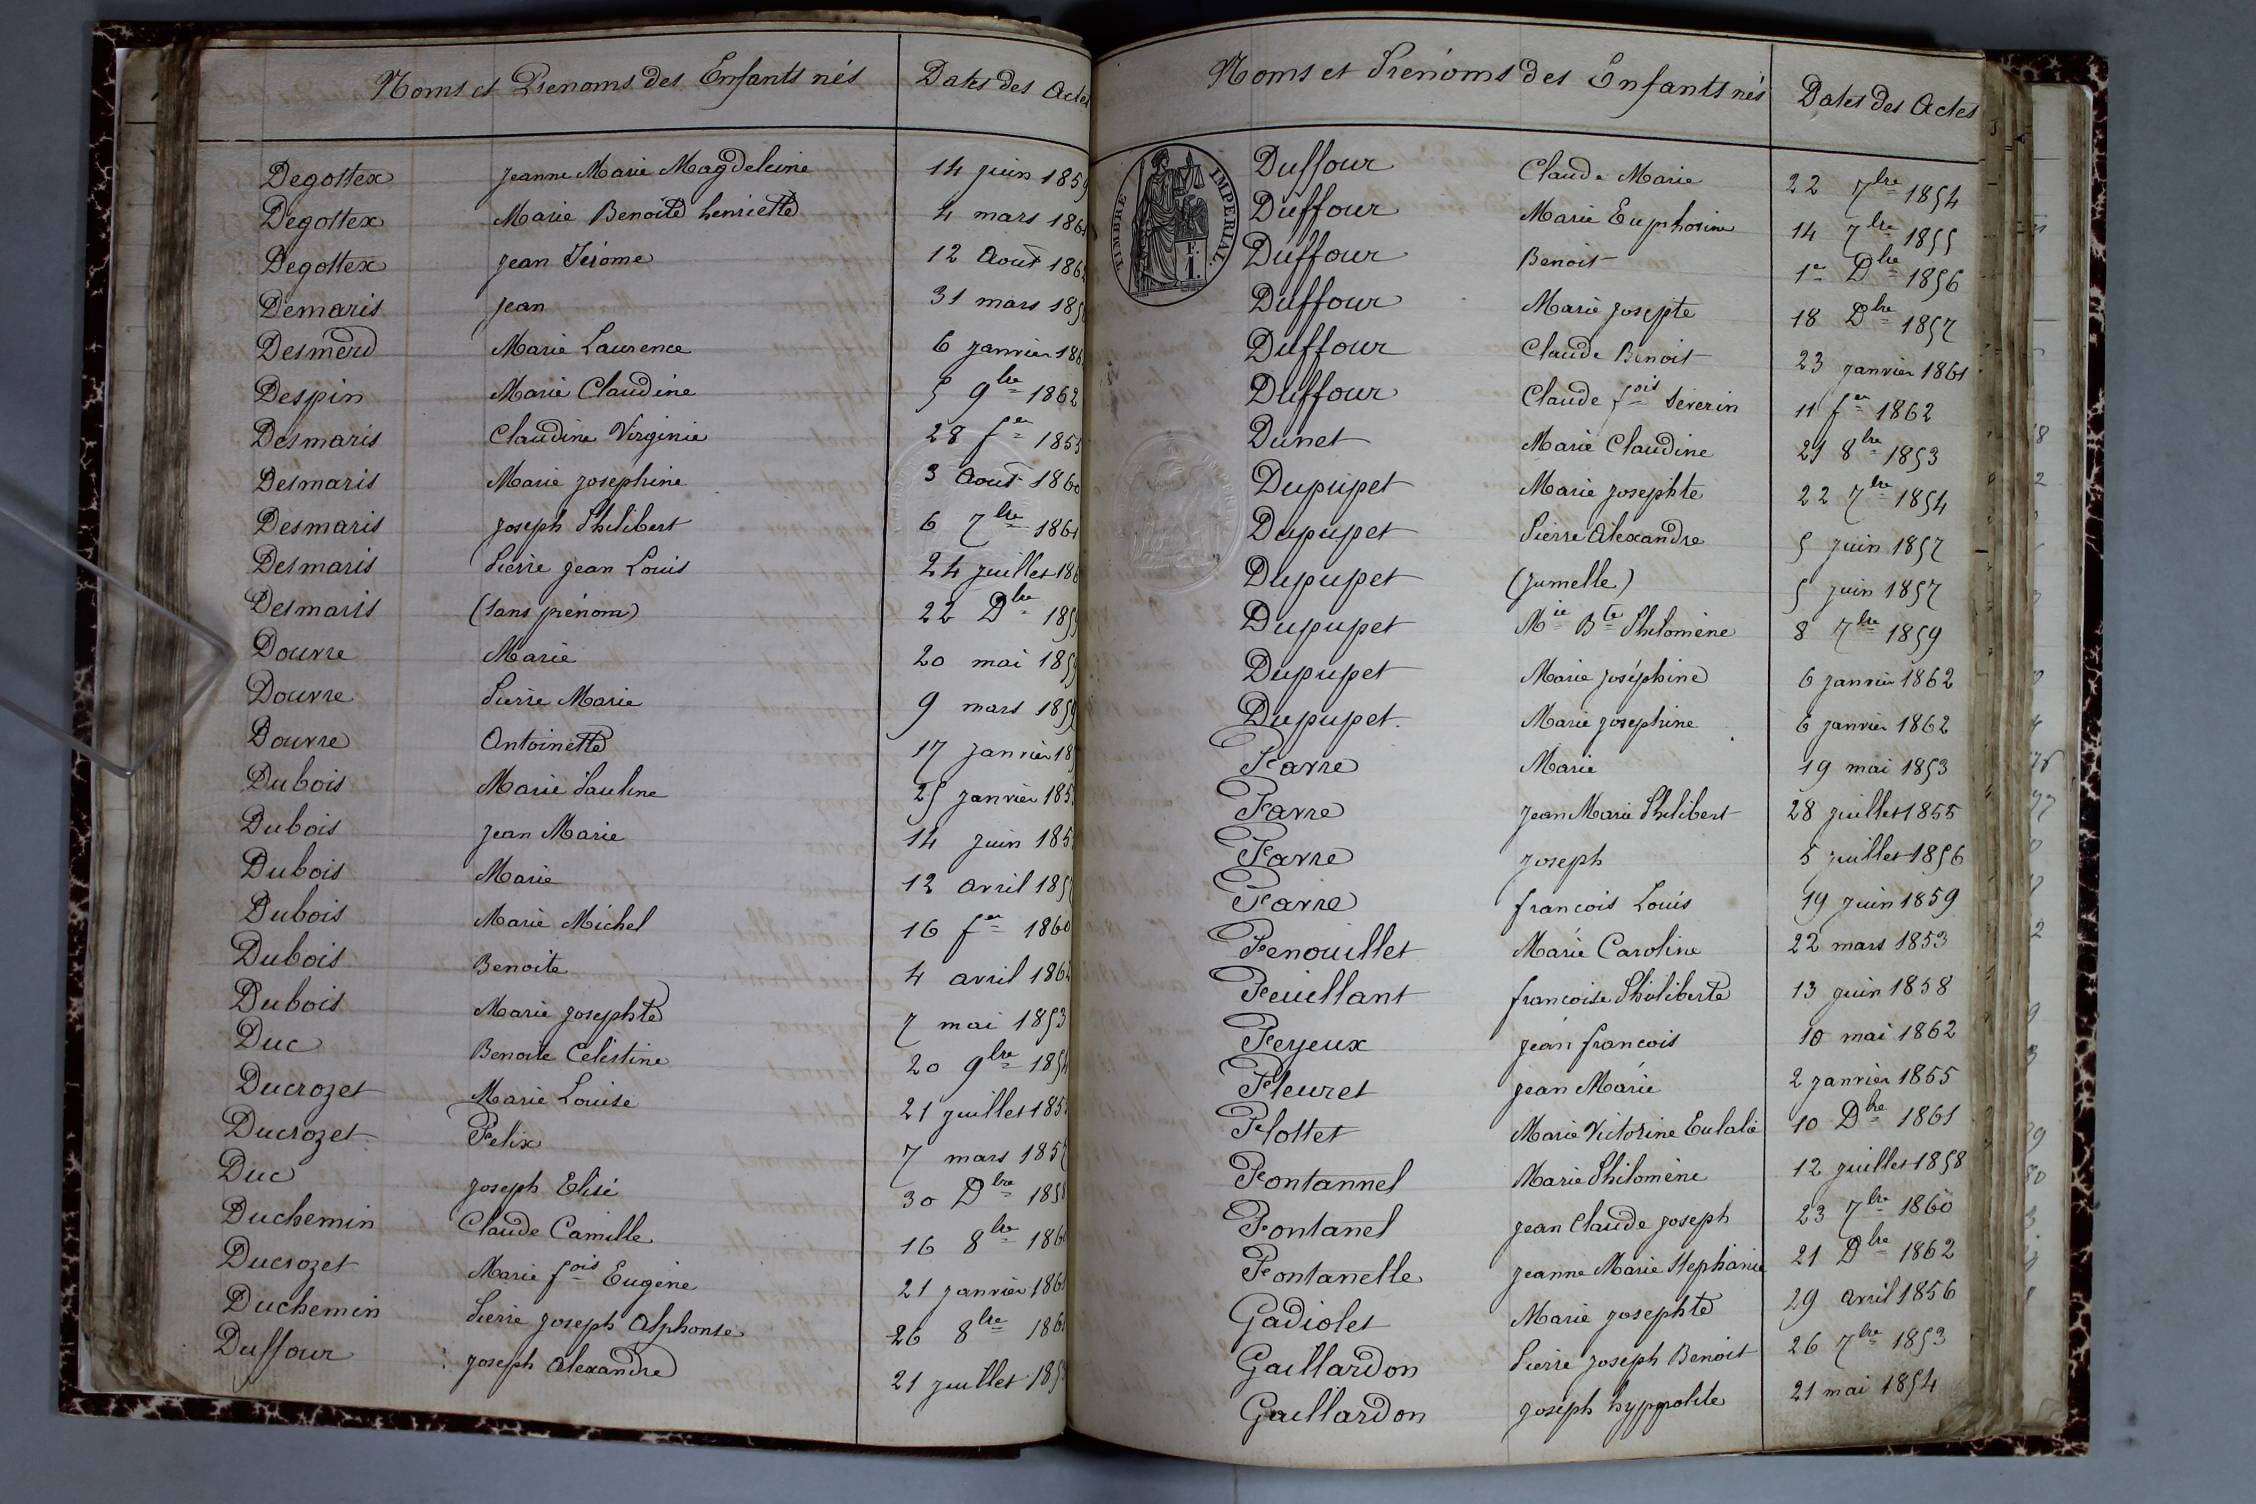 Noms et Prenoms des Enfants nés Dates des Actes
Degottex Jeanne Marie Magdeleine 14 juin 1859
Degottex Marie Benoite henriette 4 mars 186
Degottex Jean Jérome 12 Aout 186
Demaris Jean 31 mars 185
Desmerd Marie Laurence 6 janvier 186
Despin Marie Claudine 5 9bre 1862
Desmaris Claudine Virginie 28 fer 1855
Desmaris Marie josephine 3 Aout 1860
Desmaris Joseph Philibert 6 7bre 1861
Desmaris Pierre Jean Louis 24 juillet 186
Desmaris (sans prénom) 22 Dbre 185
Douvre Marie 20 mai 185
Douvre Pierre Marie 9 mars 185
Douvre Antoinette 17 janvier 18
Dubois Marie Pauline 25 janvier 185
Dubois Jean Marie 14 juin 185
Dubois Marie 12 avril 185
Dubois Marie Michel 16 fer 1860
Dubois Benoite 4 avril 1862
Dubois Marie josephte 7 mai 1853
Duc Benoite Celestine 20 9bre 1854
Ducrozet Marie Louise 21 juillet 185
Ducrozet Felix 7 mars 1857
Duc joseph Elisé 30 Dbre 1858
Duchemin Claude Camille 16 8bre 1860
Ducrozet Marie fois Eugène 21 janvier 1861
Duchemin Pierre joseph Alphonse 26 8bre 186
Duffour joseph Alexandre 21 juillet 185
Noms et Prénoms des Enfants nés Dates des Actes
TIMBRE IMPERIAL
F.
1.
Duffour Claude Marie 22 7bre 1854
Duffour Marie Euphosine 14 7bre 1855
Duffour Benoit 1er Dbre 1856
Duffour Marie josepte 18 Dbre 1857
Duffour Claude Benoit 23 janvier 1861
Duffour Claude fois Severin 11 fer 1862
Dunet Marie Claudine 21 8bre 1853
Dupupet Marie josephte 22 7bre 1854
Dupupet Pierre Alexandre 5 juin 1857
Dupupet (jumelle) 5 juin 1857
Dupupet Mie Bte Philomène 8 7bre 1859
Dupupet Marie joséphine 6 janvier 1862
Dupupet Marie josephine 6 janvier 1862
Favre Marie 19 mai 1853
Favre Jean Marie Philibert 28 juillet 1855
Favre joseph 5 juillet 1856
Favre francois Louis 19 juin 1859
Fenouillet Marie Caroline 22 mars 1853
Feuillant francoise Philiberte 13 juin 1858
Feyeux jean francois 10 mai 1862
Fleuret jean Marie 2 janvier 1855
Flottet Marie Victorine Eulalie 10 Dbre 1861
Fontannel Marie Philomène 12 juillet 1858
Fontanel jean Claude joseph 23 7bre 1860
Fontanelle jeanne Marie Stephanie 21 Dbre 1862
Gadiolet Marie josephte 29 avril 1856
Gaillardon Pierre joseph Benoit 26 7bre 1853
Gaillardon joseph hyppolite 21 mai 1854